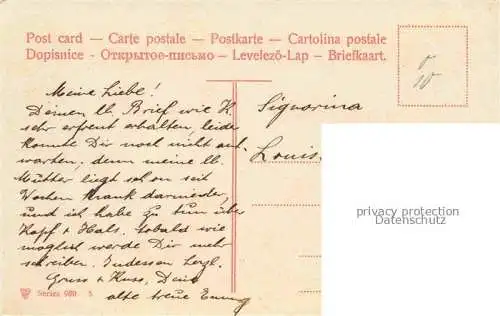 Post card — Carte postale — Postkarte — Cartolina postale
Dopisnice - Открытое-письмо – Levelező-Lap – Briefkaart.
Meine Liebe!
Deinen lb. Brief wie K.
sehr erfreut erhalten, leider
konnte Dir noch nicht ant-
warten, denn meine lb.
Mutter liegt schon seit
Wochen krank darnieder,
und ich habe zu tun über
Kopf + Hals. Sobald wie
möglich werde Dir mehr
schreiben. Indessen herzl.
Gruss + Kuss, Deine
alte treue
Signorina
Louis
privacy protection
Datenschutz
Series 980 5